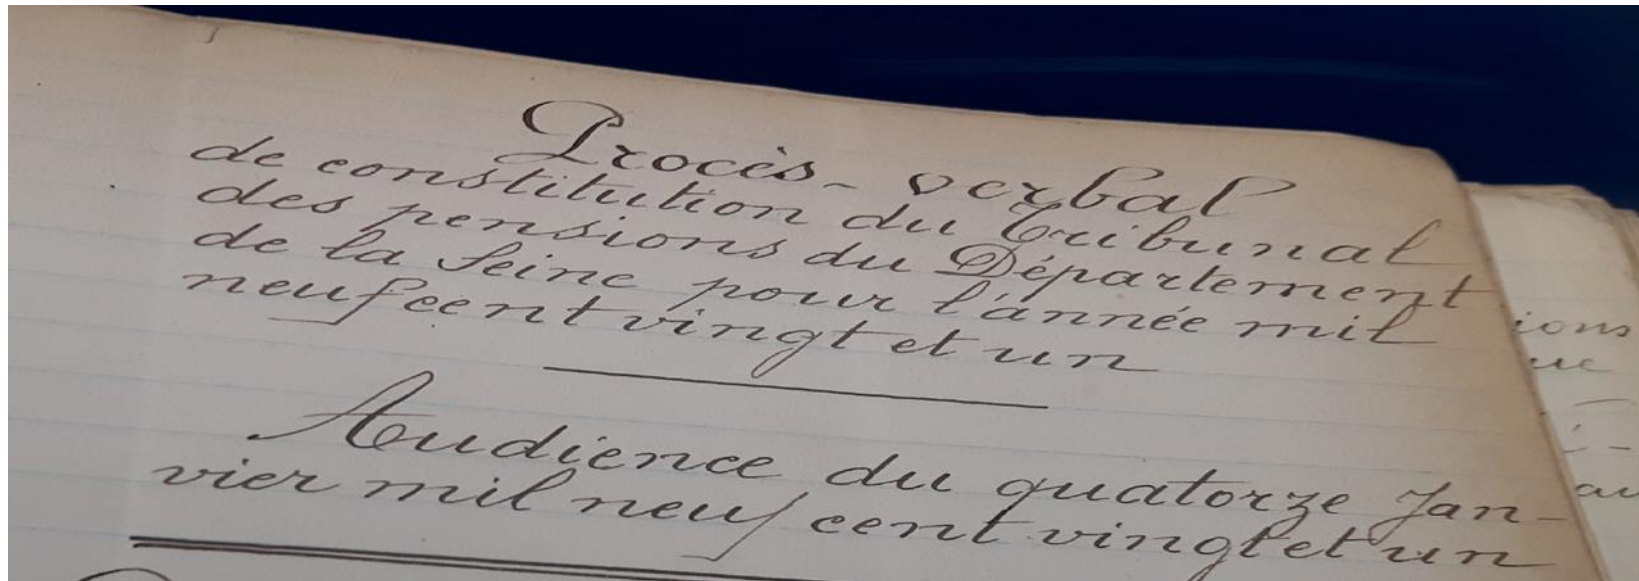 Procès-verbal
de constitution du Tribunal
des pensions du Département
de la Seine pour l'année mil
neuf cent vingt et un
Audience du quatorze Jan-
vier mil neuf cent vingt et un
ions
ue
au